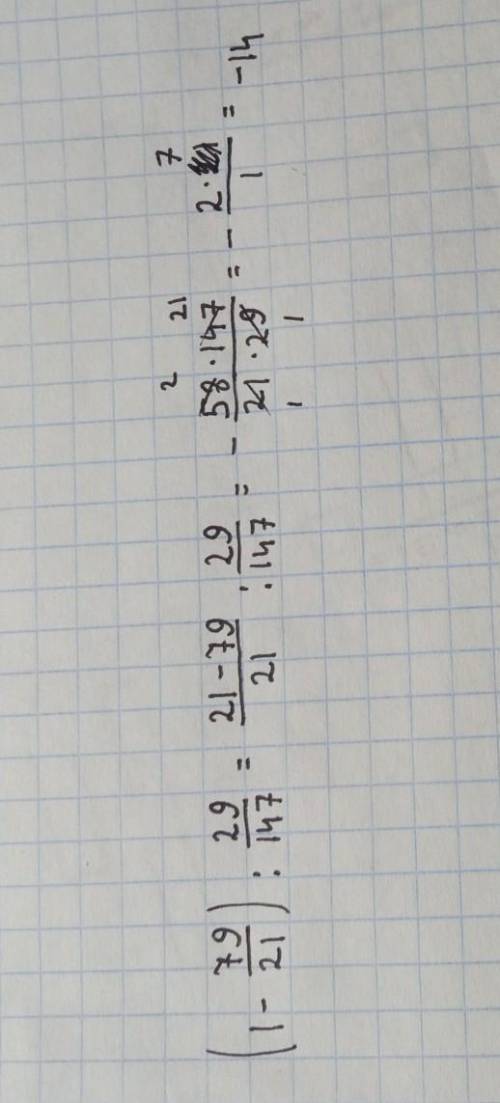 (1 - 79/21) : 29/147 = (21 - 79)/21 : 29/147 = - (58 · 147)/(21 · 29) = - (2 · 7)/1 = -14
2 21
1 1